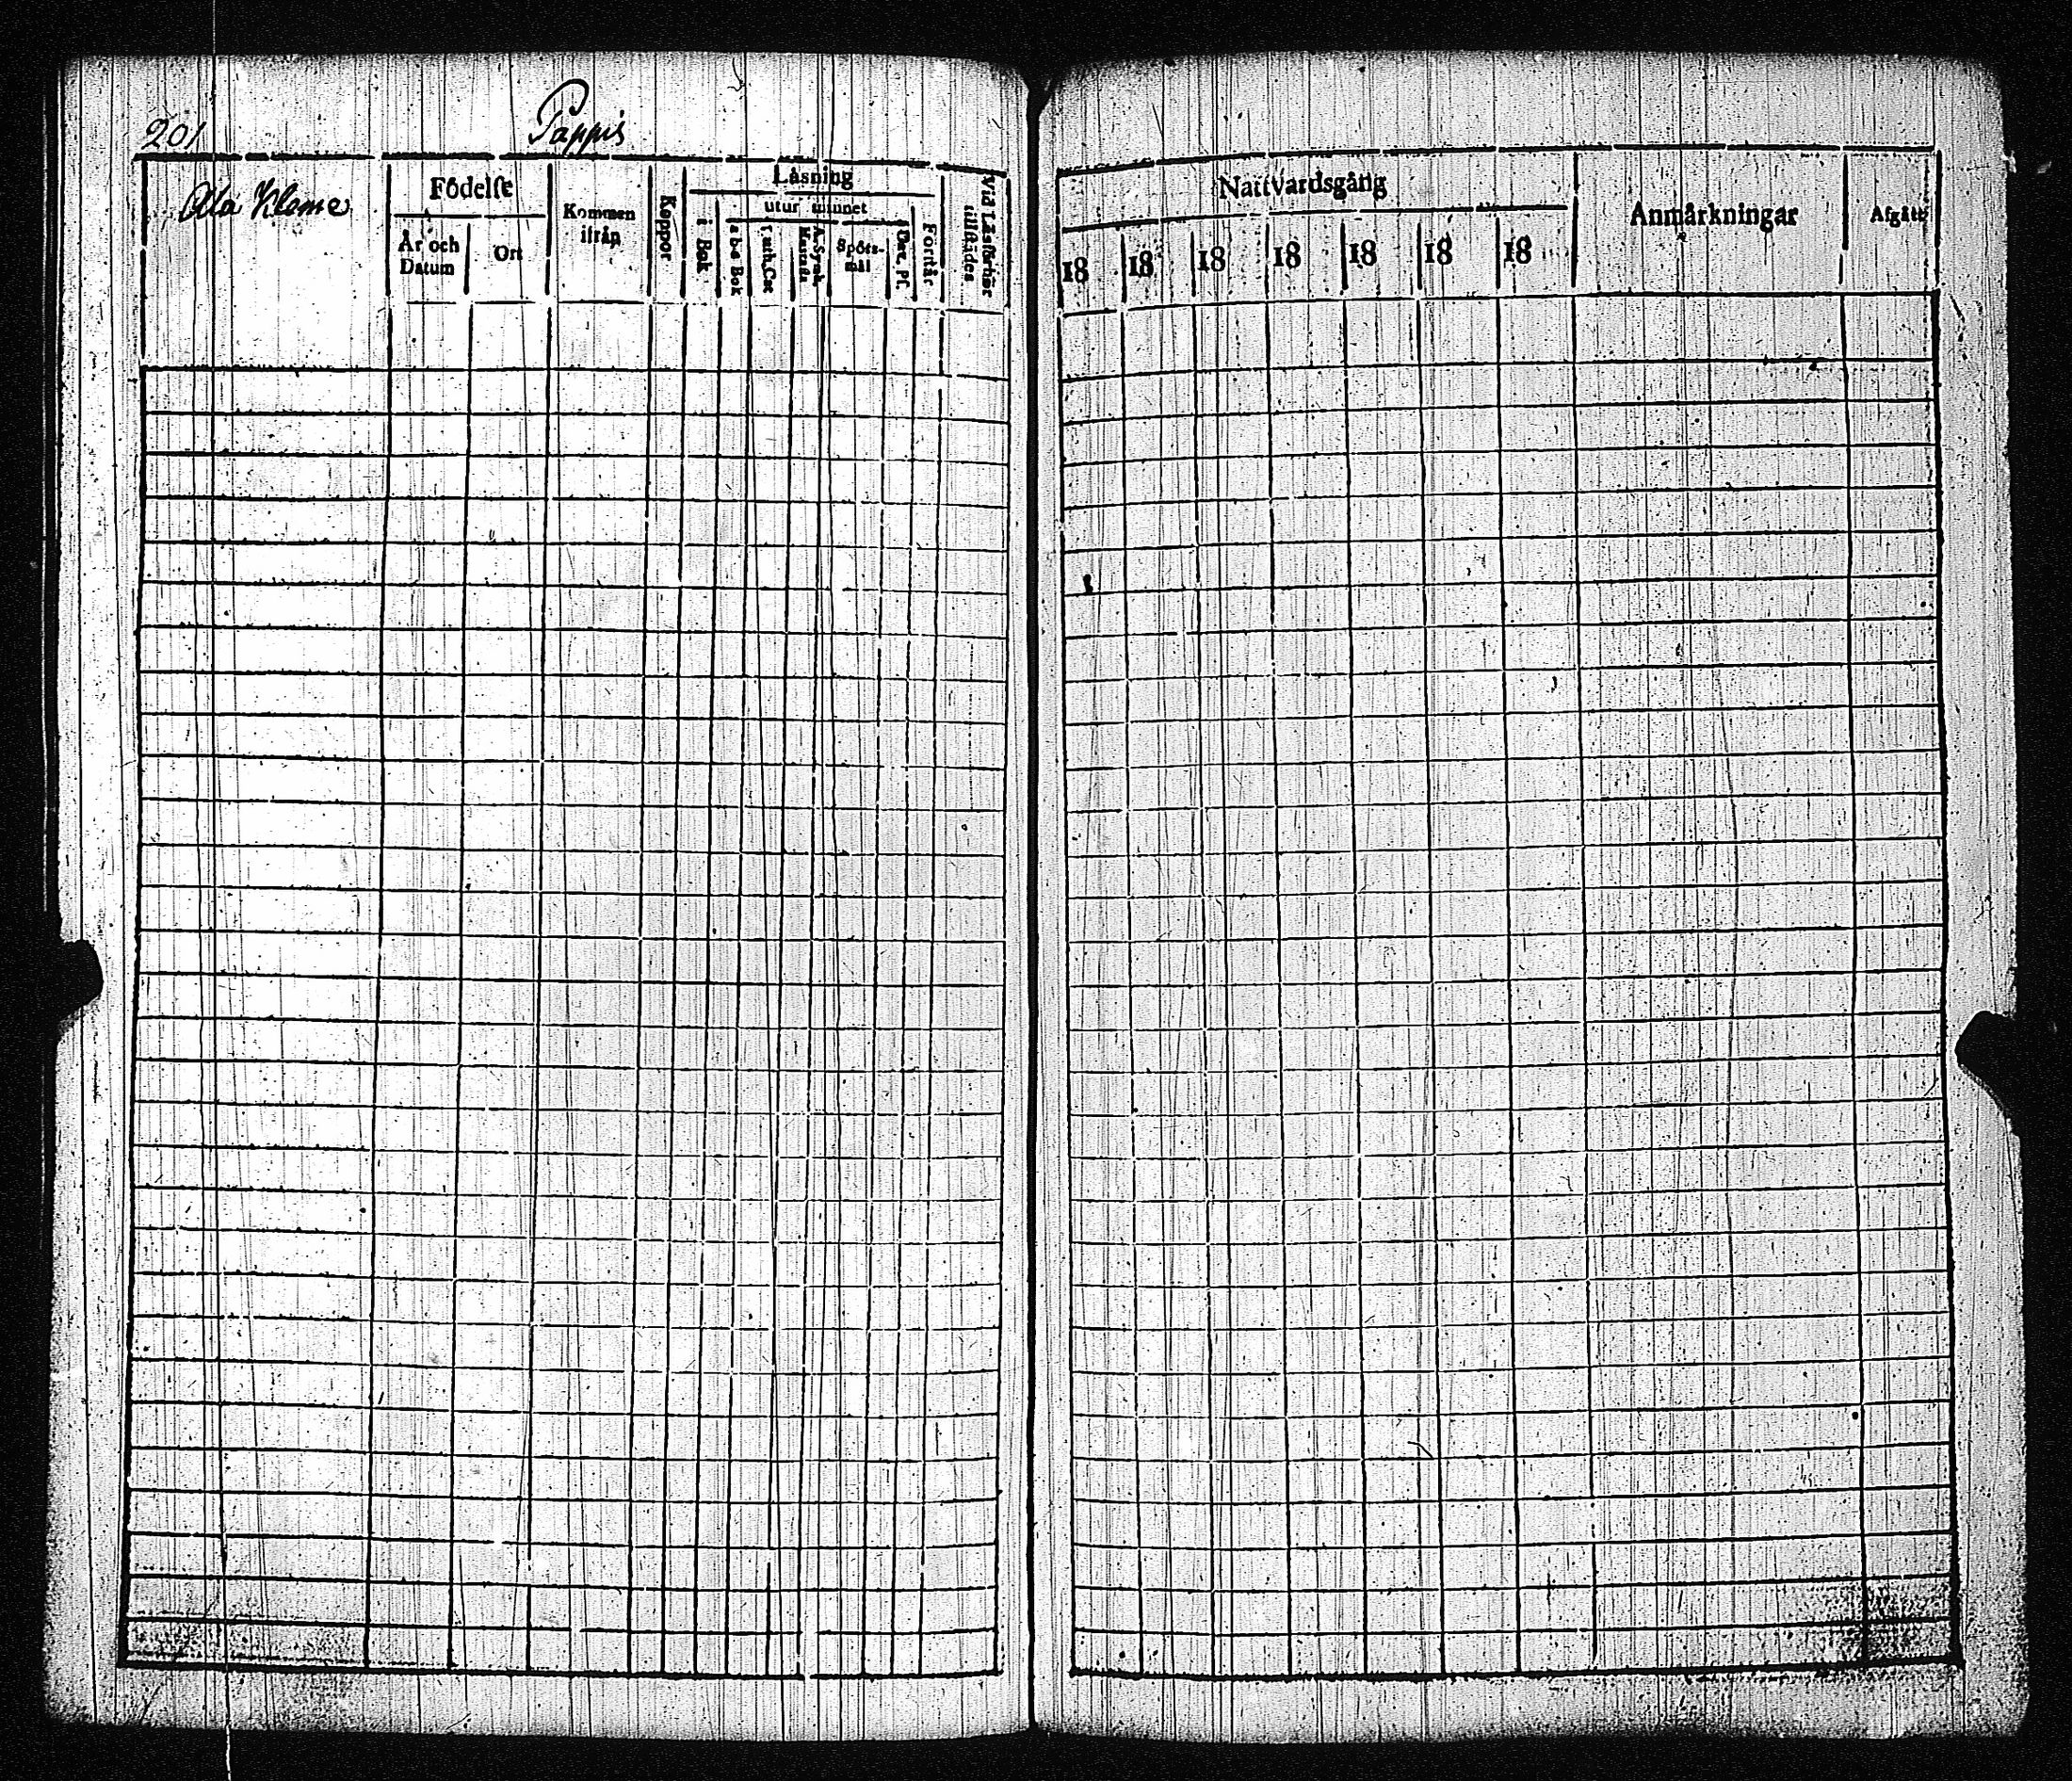 201
Pappis
Ala Klome
Födelse
År och Datum
Ort
Kommen ifrån
Koppor
Läsning
i Bok
utur minnet
a b c Bok
Luth. Cat
A. Symb.
Spörs-mål
Dav. Ps.
Förstår
Vid Läsförhör tillstädes
Nattvardsgång
18 18 18 18 18 18 18
Anmärkningar
Afgått